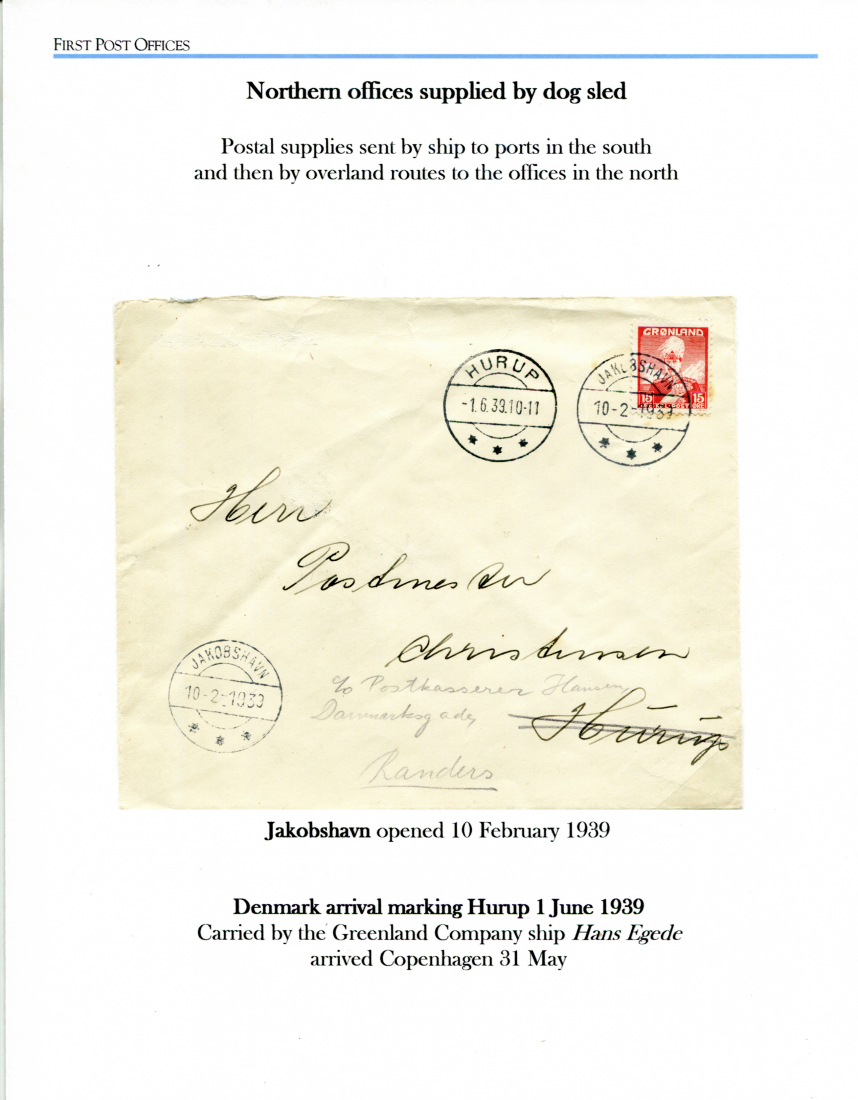 FIRST POST OFFICES
Northern offices supplied by dog sled
Postal supplies sent by ship to ports in the south
and then by overland routes to the offices in the north
GRØNLAND
15 15
HURUP
-1.6.39.10-11
JAKOBSHAVN
10-2-1939
Herr
Postmester
Christensen
c/o Postkasserer Hansen,
Danmarksgade,
Hurup
Randers
JAKOBSHAVN
10-2-1939
Jakobshavn opened 10 February 1939
Denmark arrival marking Hurup 1 June 1939
Carried by the Greenland Company ship Hans Egede
arrived Copenhagen 31 May